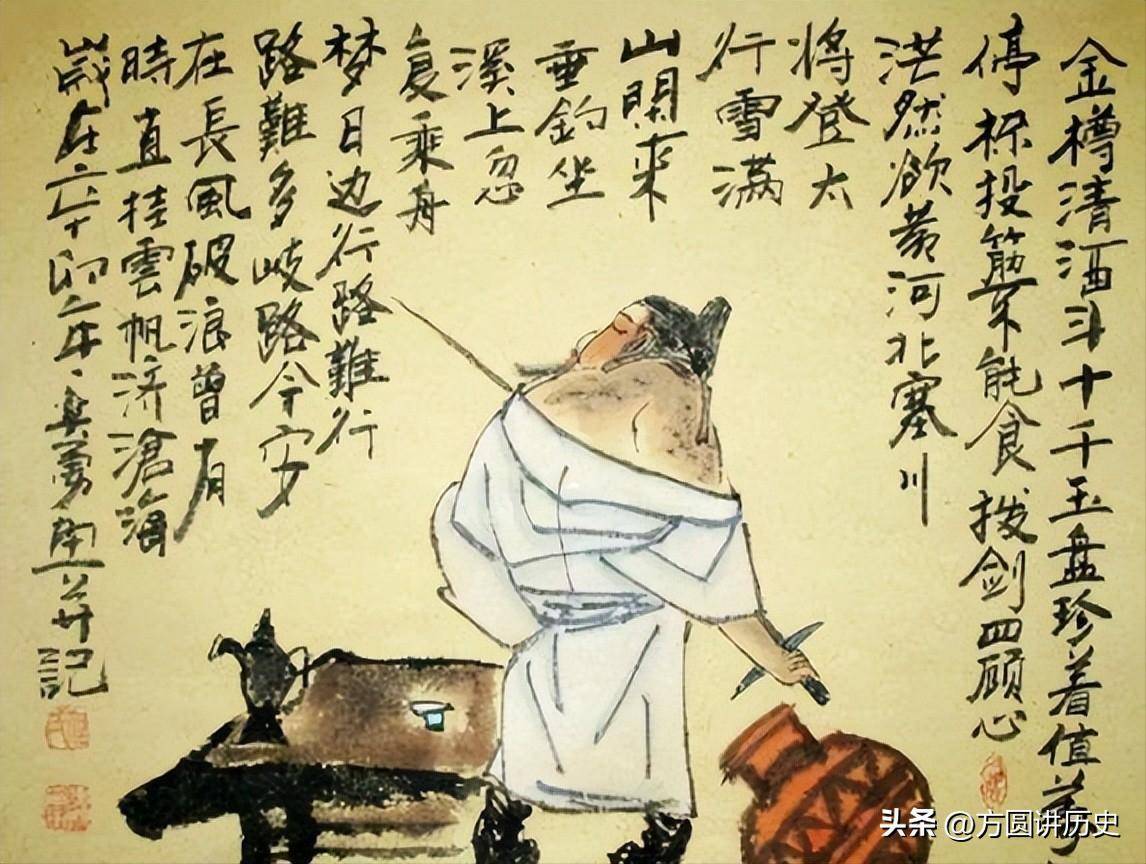 金樽清酒斗十千玉盘珍着值萬
停杯投筯不能食拔剑四顾心
茫然欲黄河北塞川
将登太
行雪满
山閑来
垂釣坐
溪上忽
复乘舟
梦日边行路難行
路難多岐路今安
在長風破浪曾有
時直挂雲帆济滄海
歲在六十卯年記
头条 @方圆讲历史